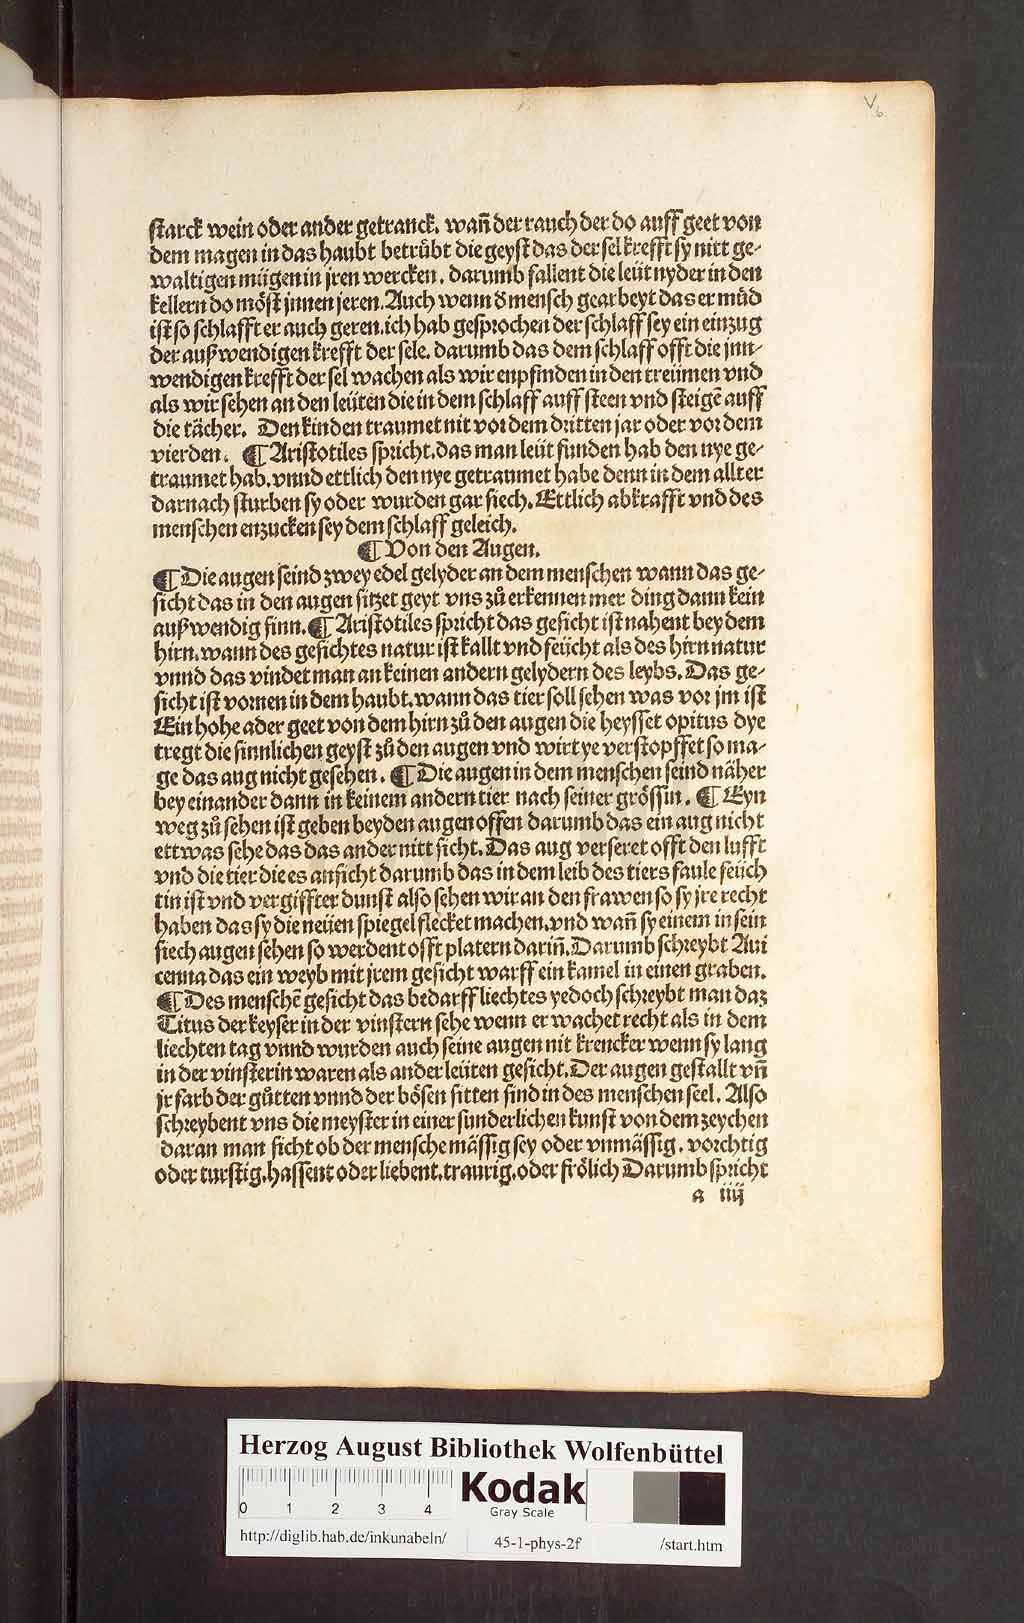 V
6
starck wein oder ander getranck. wañ der rauch der do auff geet von
dem magen in das haubt betrůbt die geyst das der sel krefft sy nitt ge-
waltigen mügen in jren wercken. darumb fallent die leüt nyder in den
kellern do möst jnnen jeren. Auch wenn d mensch gearbeyt das er müd
ist so schlafft er auch geren. ich hab gesprochen der schlaff sey ein einzug
der außwendigen krefft der sele. darumb das dem schlaff offt die jnn-
wendigen krefft der sel wachen als wir enpfinden in den treümen vnd
als wir sehen an den leüten die in dem schlaff auff steen vnd steigē auff
die tächer. Den kinden traumet nit vor dem dritten jar oder vor dem
vierden. ¶ Aristotiles spricht. das man leüt funden hab den nye ge-
traumet hab. vnnd ettlich den nye getraumet habe denn in dem allter
darnach sturben sy oder wurden gar siech. Ettlich abkrafft vnd des
menschen enzucken sey dem schlaff geleich.
¶ Von den Augen.
¶ Die augen seind zwey edel gelyder an dem menschen wann das ge-
sicht das in den augen sitzet geyt vns zů erkennen mer ding dann kein
außwendig sinn. ¶ Aristotiles spricht das gesicht ist nahent bey dem
hirn. wann des gesichtes natur ist kallt vnd feücht als des hirn natur
vnnd das vindet man an keinen andern gelydern des leybs. Das ge-
sicht ist vornen in dem haubt. wann das tier soll sehen was vor jm ist
Ein hohe ader geet von dem hirn zů den augen die heysset opitus dye
tregt die sinnlichen geyst zů den augen vnd wirt ye verstopffet so ma-
ge das aug nicht gesehen. ¶ Die augen in dem menschen seind näher
bey einander dann in keinem andern tier nach seiner grössin. ¶ Eyn
weg zů sehen ist geben beyden augen offen darumb das ein aug nicht
ettwas sehe das das ander nitt sicht. Das aug verseret offt den lufft
vnd die tier die es ansicht darumb das in dem leib des tiers faule feüch
tin ist vnd vergiffter dunst also sehen wir an den frawen so sy jre recht
haben das sy die neüen spiegel flecket machen. vnd wañ sy einem in sein
siech augen sehen so werdent offt platern dariñ. Darumb schreybt Aui
cenna das ein weyb mit jrem gesicht warff ein kamel in einen graben.
¶ Des menschē gesicht das bedarff liechtes yedoch schreybt man daz
Titus der keyser in der vinstern sehe wenn er wachet recht als in dem
liechten tag vnnd wurden auch seine augen nit krencker wenn sy lang
in der vinsterin waren als ander leüten gesicht. Der augen gestallt vñ
jr farb der gůtten vnnd der bösen sitten sind in des menschen seel. Also
schreybent vns die meyster in einer sunderlichen kunst von dem zeychen
daran man sicht ob der mensche mässig sey oder vnmässig. vorchtig
oder turstig. hassent oder liebent. traurig. oder frölich Darumb spricht
a iiij
Herzog August Bibliothek Wolfenbüttel
0 1 2 3 4
Kodak
Gray Scale
http://diglib.hab.de/inkunabeln/ 45-1-phys-2f /start.htm